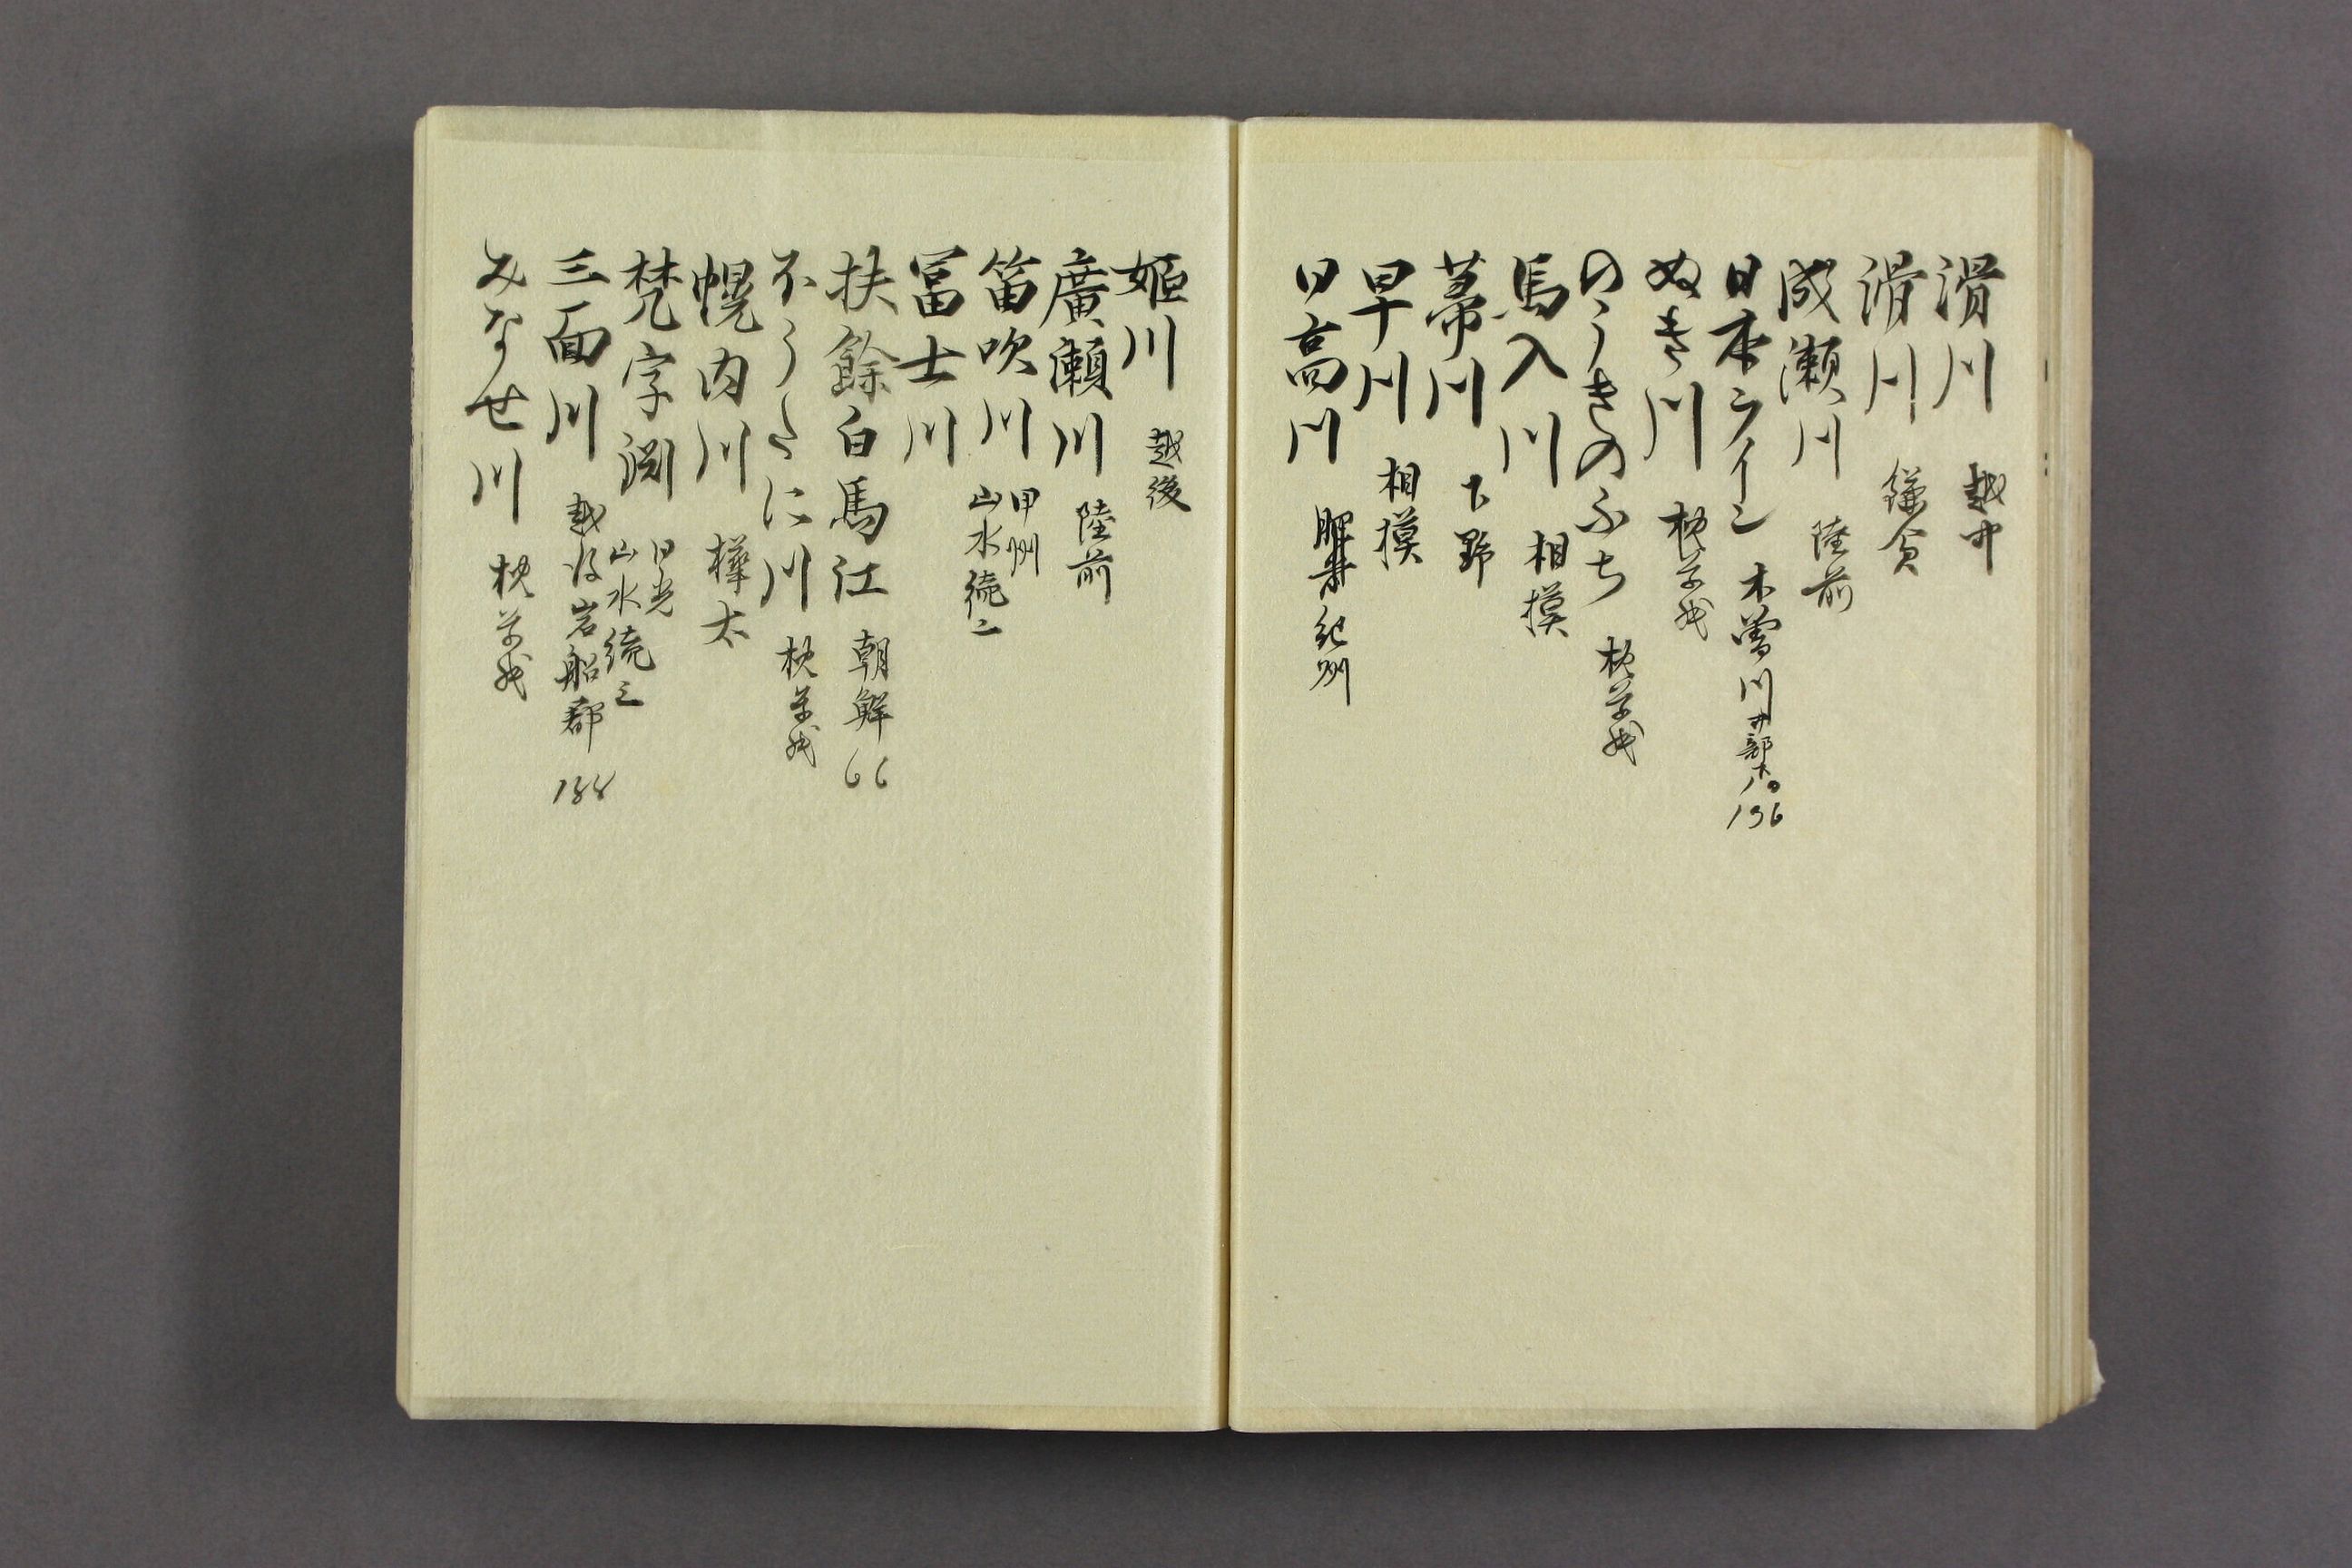 滑川 越中
滑川 鎌倉
成瀬川 陸前
日本ライン 木曽川 136
ぬき川 枕草紙
のうきのふち 枕草紙
馬入川 相摸
箒川 下野
早川 相摸
日高川 紀州
姫川 越後
廣瀬川 陸前
笛吹川 甲州 山水徳二
冨士川
扶餘白馬江 朝鮮66
川 枕草紙
幌内川 樺太
梵字渕 日光 山水徳三
三面川 越後岩船郡 188
みなせ川 枕草紙